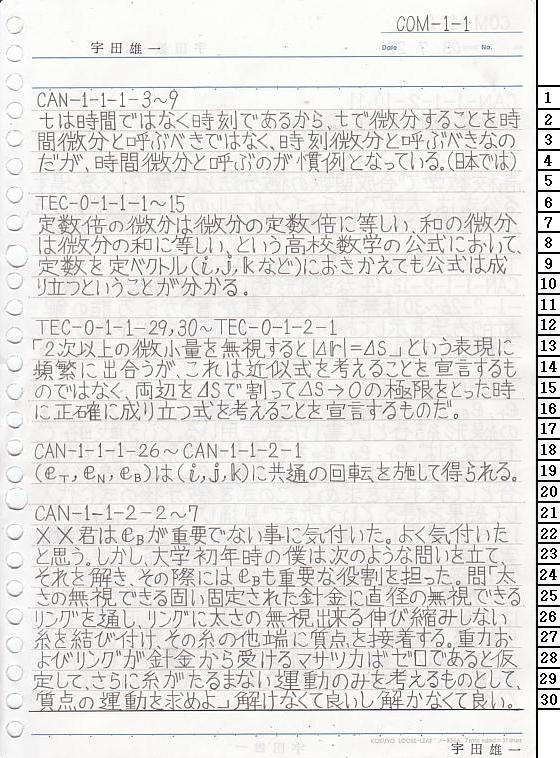 COM-1-1
宇田雄一
Date
No.
CAN-1-1-1-3~9
tは時間ではなく時刻であるから、tで微分することを時
間微分と呼ぶべきではなく、時刻微分と呼ぶべきなの
だが、時間微分と呼ぶのが慣例となっている。(日本では)
TEC-0-1-1-1~15
定数倍の微分は微分の定数倍に等しい、和の微分
は微分の和に等しい、という高校数学の公式において、
定数を定ベクトル(i,j,kなど)におきかえても公式は成
り立つということが分かる。
TEC-0-1-1-29,30~TEC-0-1-2-1
「2次以上の微小量を無視すると|Δr|=ΔS」という表現に
頻繁に出合うが、これは近似式を考えることを宣言するも
のではなく、両辺をΔSで割ってΔS→0の極限をとった時
に正確に成り立つ式を考えることを宣言するものだ。
CAN-1-1-1-26~CAN-1-1-2-1
(eT,eN,eB)は(i,j,k)に共通の回転を施して得られる。
CAN-1-1-2-2~7
××君はeBが重要でない事に気付いた。よく気付いた
と思う。しかし、大学初年時の僕は次のような問いを立て、
それを解き、その際にはeBも重要な役割を担った。問「太
さの無視できる固い固定された針金に直径の無視できる
リングを通し、リングに太さの無視出来る伸び縮みしない
糸を結び付け、その糸の他端に質点を接着する。重力お
よびリングが針金から受けるマサツ力はゼロであると仮
定して、さらに糸がたるまない運動のみを考えるものとして、
質点の運動を求めよ」解けなくて良いし解かなくて良い。
KOKUYO LOOSE-LEAF
宇田雄一
1
2
3
4
5
6
7
8
9
10
11
12
13
14
15
16
17
18
19
20
21
22
23
24
25
26
27
28
29
30